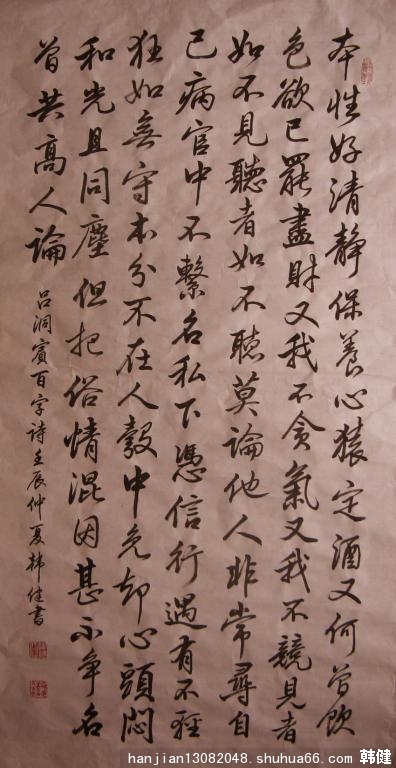 本性好清静保养心猿定酒又何曾饮
色欲已罷盡財又我不貪氣又我不競見者
如不見聽者如不聽莫論他人非常尋自
己病官中不繫名私下憑信行遇有不輕
狂如無守本分不在人彀中免却心頭悶
和光且同塵但把俗情混因甚不争名
曾共高人論
吕洞賓百字詩壬辰仲夏韩健書
hanjian13082048.shuhua66.com 韩健